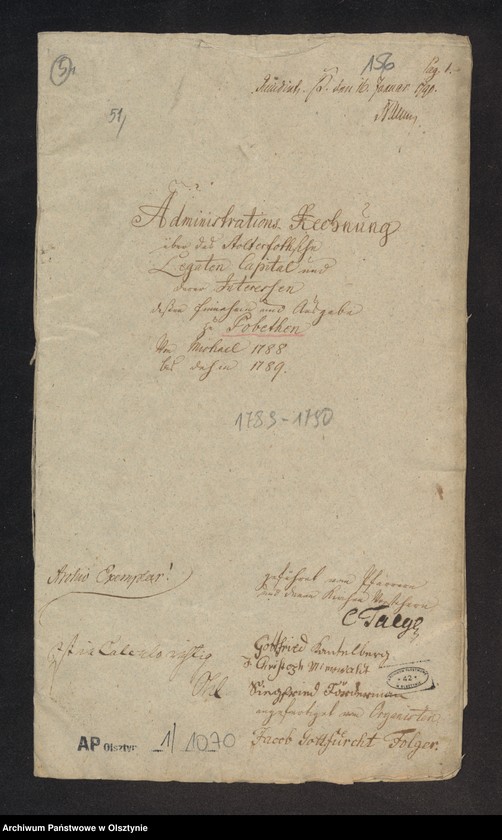 5
186
Pag. 1.
den 16. Januar 1790.
51/
Administrations Rechnung
über das Holterfothsche
Legaten Capital und
derer Interessen
dessen Einnahme und Ausgabe
Pobethen
Von Michael 1788
bis dahin 1789.
1789-1790
Archiv Exemplar!
geführet vom Pfarrern
und denen Kirchen Vorstehern
C Taege
Gottfried Kantelberg
Christoph
Siegfried Förderman
angefertiget vom Organisten
Jacob Gottfurcht Folger.
ist in Calculo richtig
42
AP Olsztyn 1/1070
Archiwum Państwowe w Olsztynie